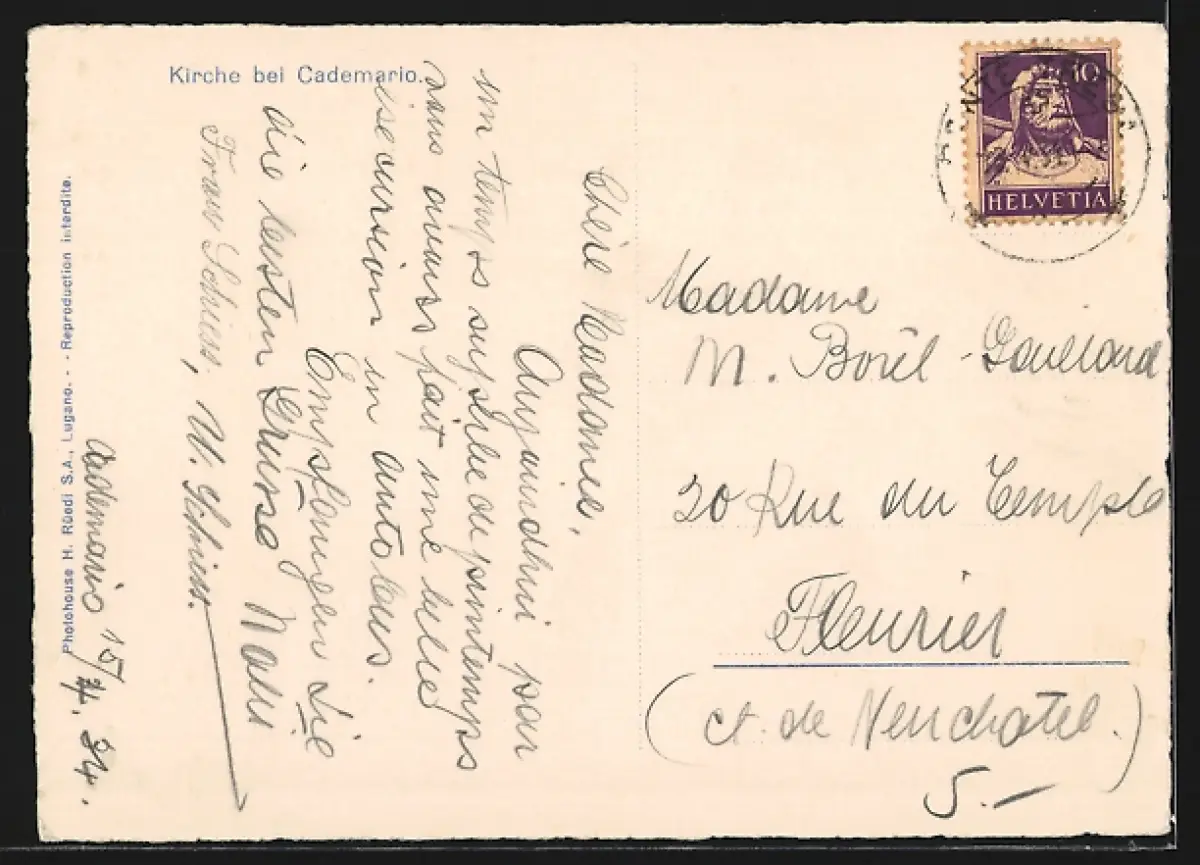 Kirche bei Cademario.
Photohouse H. Rüedi S.A., Lugano. - - Reproduction interdite.
Cademario 15/4. 34.
Chère Madame,
Aujourdhui par
un temps suptile du printemps
nous avons fait une belle
discursion en autobus.
Empfangen Sie
die besten Grüsse Nahu
Frau Schiess, W. Schiess.
10
HELVETIA
Madame
M. Borël-Gaillard
20 Rue du Temple
Fleurier
(ct. de Neuchatel.)
5.-